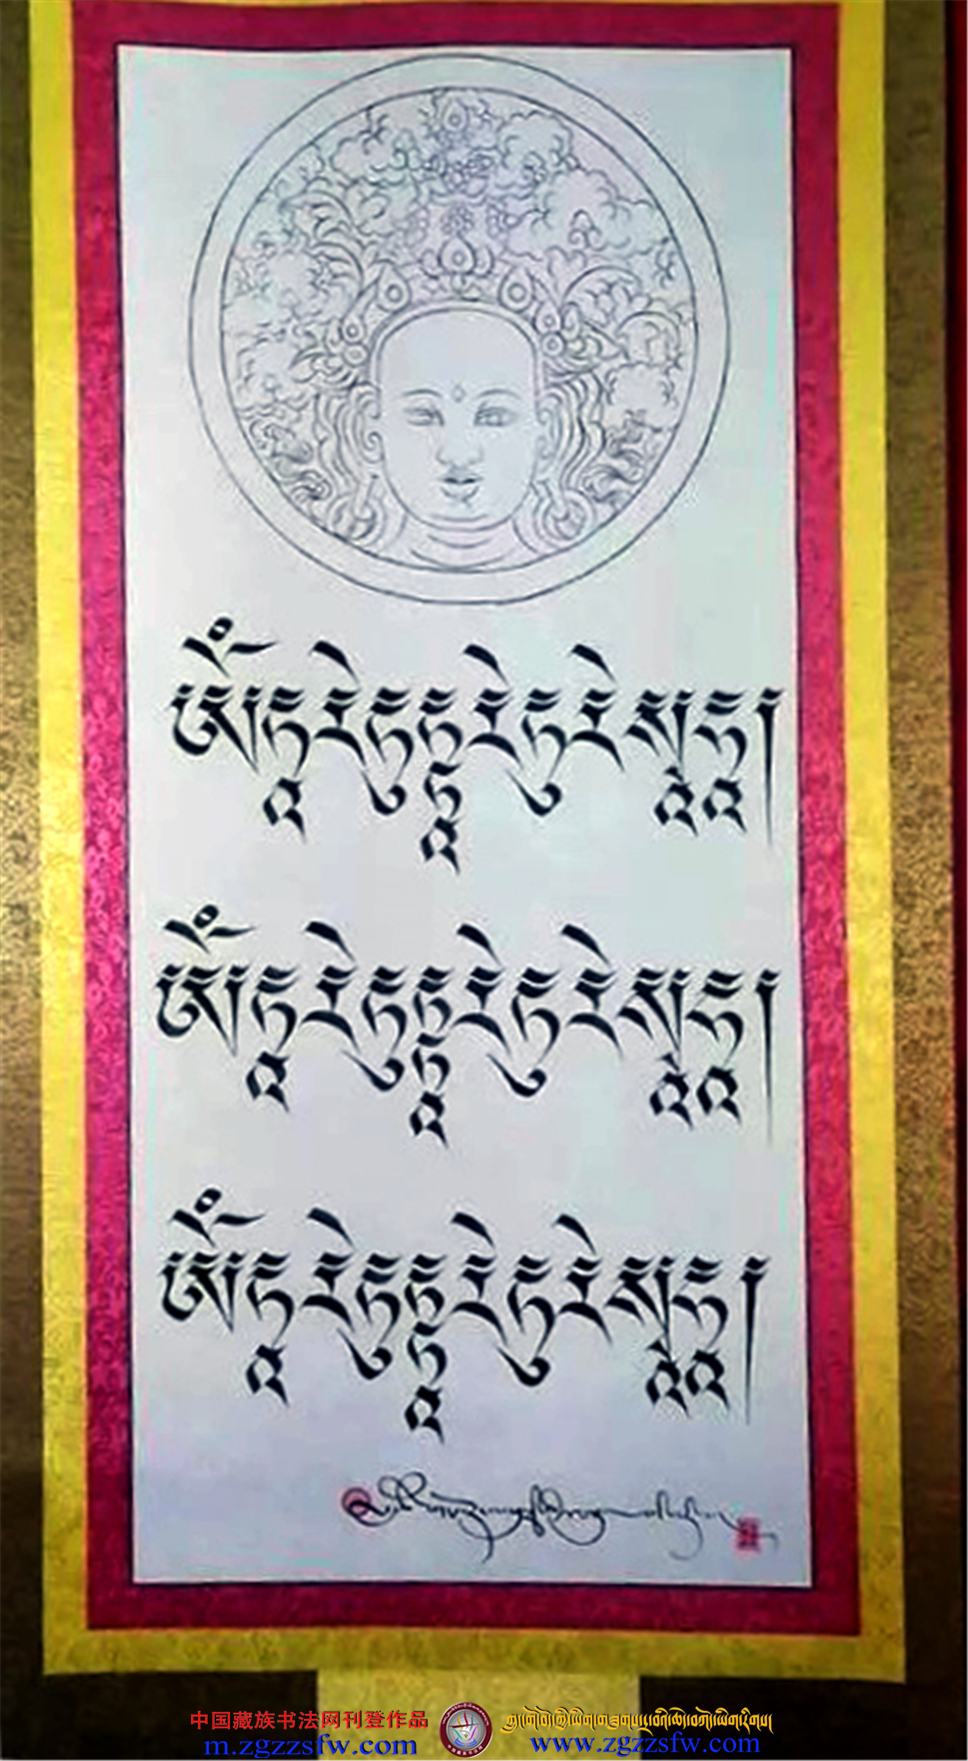 ༀ་ཏཱ་རེ་ཏུ་ཏྟཱ་རེ་ཏུ་རེ་སྭཱ་ཧཱ།
ༀ་ཏཱ་རེ་ཏུ་ཏྟཱ་རེ་ཏུ་རེ་སྭཱ་ཧཱ།
ༀ་ཏཱ་རེ་ཏུ་ཏྟཱ་རེ་ཏུ་རེ་སྭཱ་ཧཱ།
中国藏族书法网刊登作品
m.zgzzsfw.com
www.zgzzsfw.com